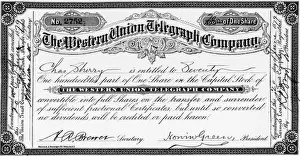 No. 2752
of One Share
The Western Union Telegraph Company.
Chas Sherry is entitled to Seventy
One hundredths part of One Share in the Capital Stock of
THE WESTERN UNION TELEGRAPH COMPANY
convertible into full Shares on the transfer and surrender
of sufficient fractional Certificates, but until so converted
no dividends will be credited or paid hereon.
Secretary. Norvin Green, President